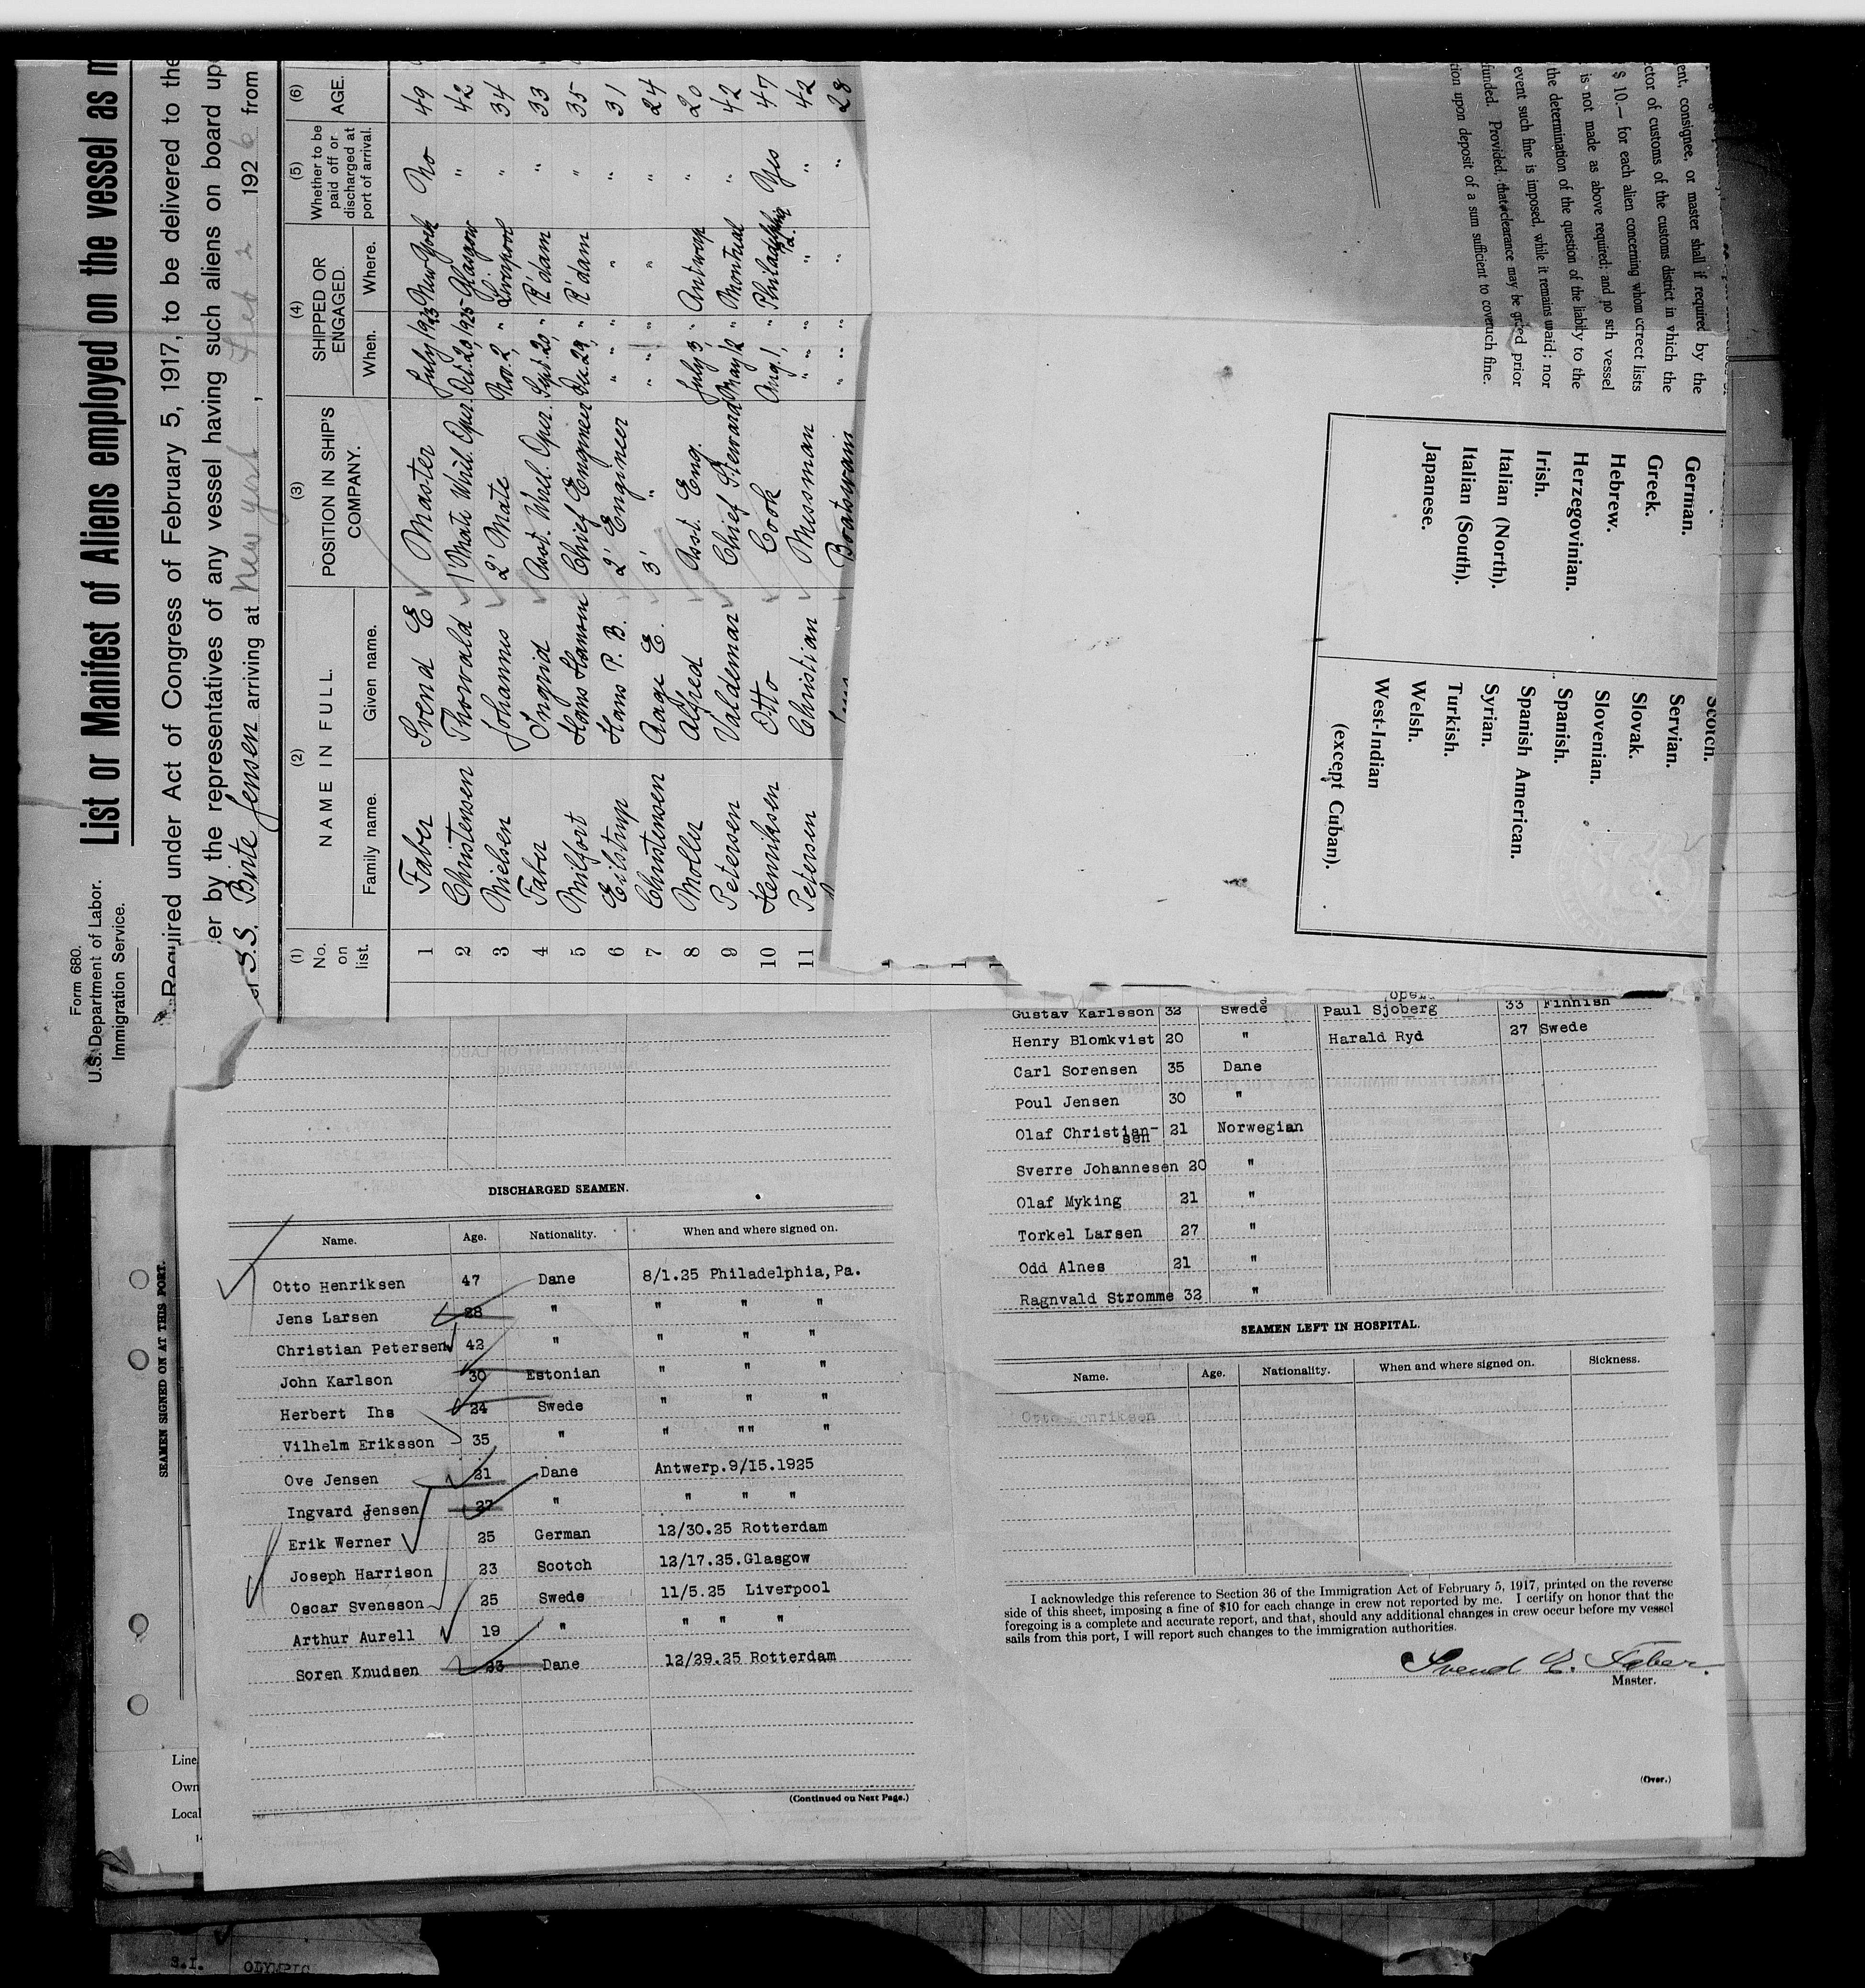 Form 680.
U.S. Department of Labor.
Immigration Service.
List or Manifest of Aliens employed on the vessel as
Required under Act of Congress of February 5, 1917, to be delivered to the
by the representatives of any vessel having such aliens on board
S.S. Birte Jensen arriving at New York, Feb 2 1926 from
(1) (2) (3) (4) (5) (6)
No. on list. NAME IN FULL. POSITION IN SHIP'S COMPANY. SHIPPED OR ENGAGED. Whether to be paid off or discharged at port of arrival. AGE.
Family name. Given name. When. Where.
1 Faber Svend E Master July 1923 New York No 49
2 Christensen Thorwald 1' Mate Wirl. Oper. Oct. 20, 1925 Glasgow " 42
3 Nielsen Johannes 2' Mate Nov. 2, " Liverpool " 34
4 Faber Ingrid Asst. Wirel. Oper. Sept. 20, " R'dam " 33
5 Milfort Hans Hansen Chief Engineer Dec. 29, " R'dam " 35
6 Eilstrup Hans P. B. 2' Engineer " " " " " 31
7 Christensen Aage E. 3' " " " " " " 24
8 Moller Alfred Asst. Eng. July 3, " Antwerp " 20
9 Petersen Valdemar Chief Steward May 12 " Montreal " 42
10 Henriksen Otto Cook Aug. 1, " Philadelphia Pa. Yes 47
11 Petersen Christian Messman " " " " " 42
Boatswain " " " " " 28
ent, consignee, or master shall if required by the
ctor of customs of the customs district in which the
$ 10.— for each alien concerning whom correct lists
is not made as above required; and no such vessel
the determination of the question of the liability to the
event such fine is imposed, while it remains unpaid; nor
funded. Provided, that clearance may be granted prior
tion upon deposit of a sum sufficient to cover such fine.
German.
Greek.
Hebrew.
Herzegovinian.
Irish.
Italian (North).
Italian (South).
Japanese.
Scotch.
Servian.
Slovak.
Slovenian.
Spanish.
Spanish American.
Syrian.
Turkish.
Welsh.
West-Indian
(except Cuban).
DISCHARGED SEAMEN.
Name. Age. Nationality. When and where signed on.
Otto Henriksen 47 Dane 8/1.25 Philadelphia,Pa.
Jens Larsen 28 " " " "
Christian Petersen 42 " " " "
John Karlson 30 Estonian " " "
Herbert Ihs 24 Swede " " "
Vilhelm Eriksson 35 " " "" "
Ove Jensen 21 Dane Antwerp.9/15.1925
Ingvard Jensen 27 " " " "
Erik Werner 25 German 12/30.25 Rotterdam
Joseph Harrison 23 Scotch 12/17.25.Glasgow
Oscar Svensson 25 Swede 11/5.25 Liverpool
Arthur Aurell 19 " " " "
Soren Knudsen 23 Dane 12/29.25 Rotterdam
(Continued on Next Page.)
Gustav Karlsson 32 Swede Paul Sjoberg 33 Finnish
Henry Blomkvist 20 " Harald Ryd 27 Swede
Carl Sorensen 35 Dane
Poul Jensen 30 "
Olaf Christian-
sen 21 Norwegian
Sverre Johannesen 20 "
Olaf Myking 21 "
Torkel Larsen 27 "
Odd Alnes 21 "
Ragnvald Stromme 32 "
SEAMEN LEFT IN HOSPITAL.
Name. Age. Nationality. When and where signed on. Sickness.
Otto Henriksen
I acknowledge this reference to Section 36 of the Immigration Act of February 5, 1917, printed on the reverse
side of this sheet, imposing a fine of $10 for each change in crew not reported by me. I certify on honor that the
foregoing is a complete and accurate report, and that, should any additional changes in crew occur before my vessel
sails from this port, I will report such changes to the immigration authorities.
Svend E. Faber.
Master.
(Over.)
SEAMEN SIGNED ON AT THIS PORT.
Line
Own
Local
S.I. OLYMPIC